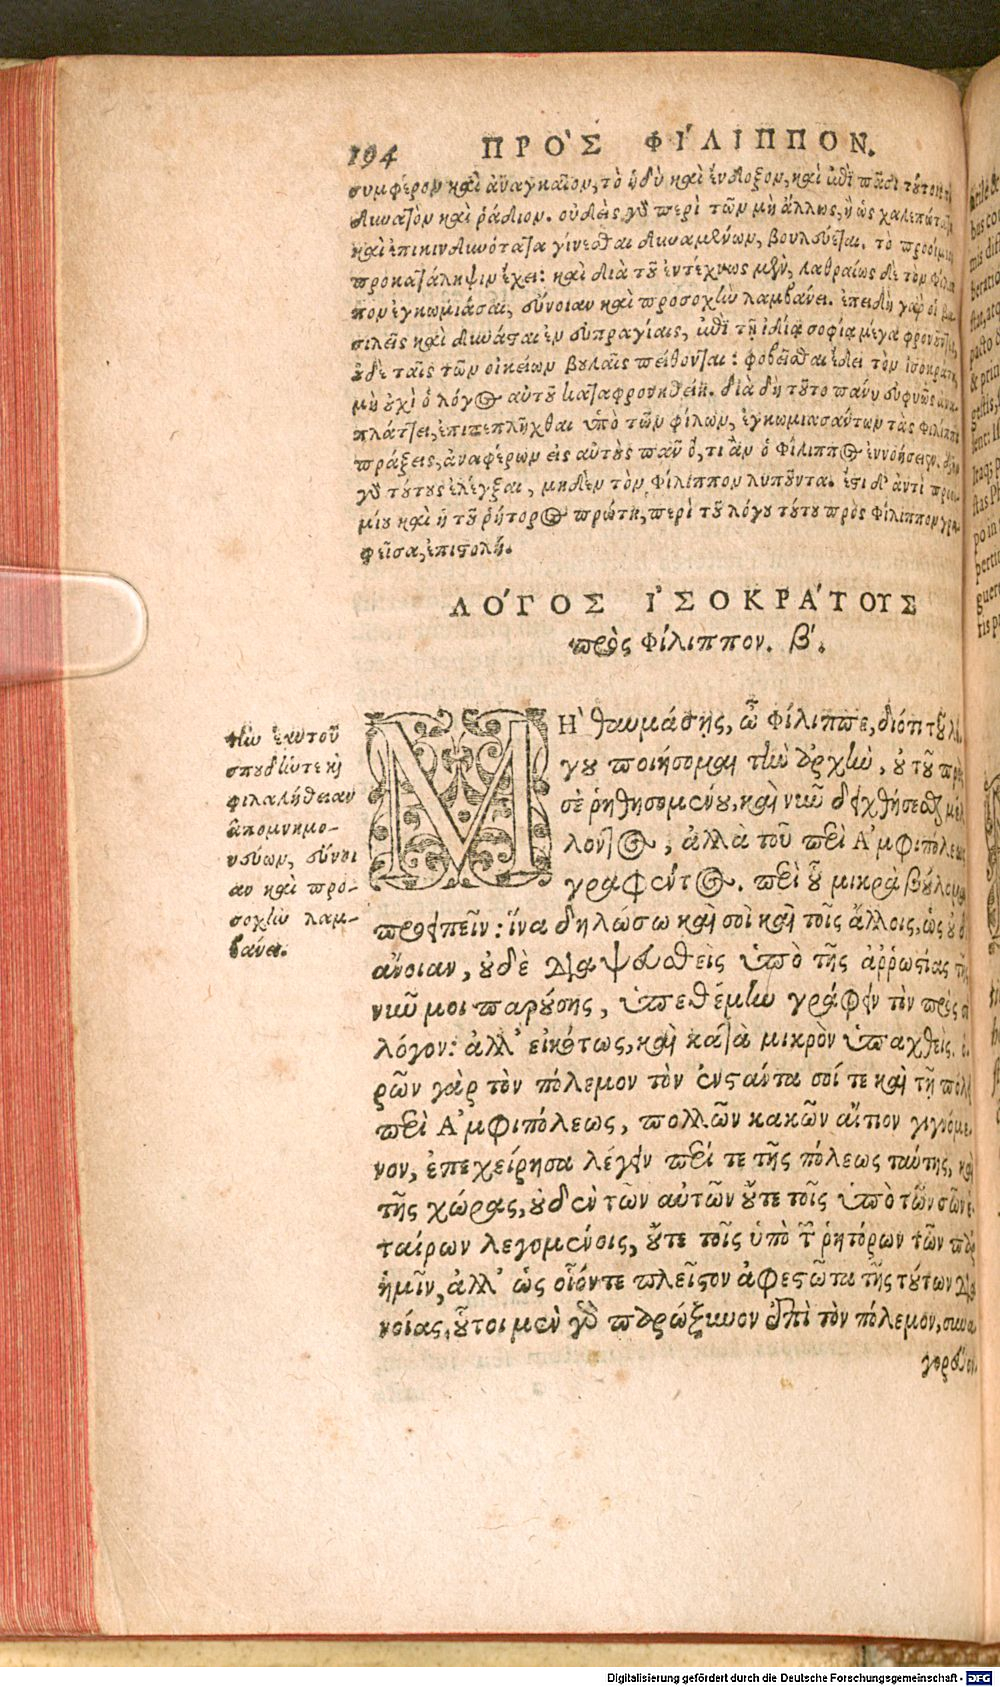 194 ΠΡΟ'Σ ΦΙ'ΛΙΠΠΟΝ.
συμφέρον καὶ ἀναγκαῖον, τὸ ἡδὺ καὶ ἔνδοξον, καὶ ἐπὶ πᾶσι τούτοις τὸ
δυνατὸν καὶ ῥᾴδιον. οὐδεὶς γὰρ περὶ τῶν μὴ ἄλλως, ἢ ὡς χαλεπώτατα
καὶ ἐπικινδυνότατα γίνεσθαι δυναμένων, βουλεύεται. τὸ προοίμιον
προκατάληψιν ἔχει: καὶ διὰ τοῦ ἐντέχνως μὲν, λαθραίως δὲ τὸν Φίλιπ
πον ἐγκωμιάσαι, εὔνοιαν καὶ προσοχὴν λαμβάνει. ἐπειδὴ γὰρ οἱ βα
σιλεῖς καὶ δυνάσται ἐν εὐπραγίαις, ἐπὶ τῇ ἰδίᾳ σοφίᾳ μέγα φρονοῦντες,
οὐδὲ ταῖς τῶν οἰκείων βουλαῖς πείθονται: φοβεῖσθαι ἔδει τὸν ἰσοκράτη,
μὴ οὐχὶ ὁ λόγος αὐτοῦ καταφρονηθείη. διὰ δὴ τοῦτο πάνυ εὐφυῶς ἀνα
πλάττει, ἐπιπεπλῆχθαι ὑπὸ τῶν φίλων, ἐγκωμιασάντων τὰς Φιλίππου
πράξεις, ἀναφέρων εἰς αὐτοὺς πᾶν ὅ, τι ἂν ὁ Φίλιππος ἐννοήσειεν.
γὰρ τούτους ἐλέγξαι, μηδὲν τὸν Φίλιππον λυποῦντα. ἔστι δ' ἀντὶ προοι
μίου καὶ ἡ τοῦ ῥήτορος πρώτη, περὶ τοῦ λόγου τούτου πρὸς Φίλιππον γρα
φεῖσα, ἐπιστολή.
ΛΟ'ΓΟΣ Ι'ΣΟΚΡΑ'ΤΟΥΣ
πρὸς Φίλιππον. β'.
ΜΗ' θαυμάσῃς, ὦ Φίλιππε, διότι τοῦ λό
γου ποιήσομαι τὴν ἀρχὴν, οὐ τοῦ πρὸς
σὲ ῥηθησομένου, καὶ νῦν δειχθήσεσθαι μέλ
λοντος, ἀλλὰ τοῦ περὶ Ἀμφιπόλεως
γραφέντος. περὶ οὗ μικρὰ βούλομαι
προειπεῖν: ἵνα δηλώσω καὶ σοὶ καὶ τοῖς ἄλλοις, ὡς οὐ δι'
ἄνοιαν, οὐδὲ διαψευσθεὶς ὑπὸ τῆς ἀῤῥωστίας τῆς
νῦν μοι παρούσης, ὑπεθέμην γράφειν τὸν πρὸς σὲ
λόγον: ἀλλ' εἰκότως, καὶ κατὰ μικρὸν ὑπαχθεὶς. ὁ-
ρῶν γὰρ τὸν πόλεμον τὸν ἐνστάντα σοί τε καὶ τῇ πόλει
περὶ Ἀμφιπόλεως, πολλῶν κακῶν αἴτιον γιγνόμε-
νον, ἐπεχείρησα λέγειν περί τε τῆς πόλεως ταύτης, καὶ
τῆς χώρας, οὐδὲν τῶν αὐτῶν οὔτε τοῖς ὑπὸ τῶν σῶν ἑ-
ταίρων λεγομένοις, οὔτε τοῖς ὑπὸ τῶν ῥητόρων τῶν παρ'
ἡμῖν, ἀλλ' ὡς οἷόντε πλεῖστον ἀφεστῶτα τῆς τούτων δια
νοίας. οὗτοι μὲν γὰρ παρώξυνον ἐπὶ τὸν πόλεμον, συνα
γορεύον
τὴν ἑαυτοῦ
σπουδήν τε καὶ
φιλαλήθειαν
ἀπομνημο-
νεύων, εὔνοι
αν καὶ προ-
σοχὴν λαμ-
βάνει.